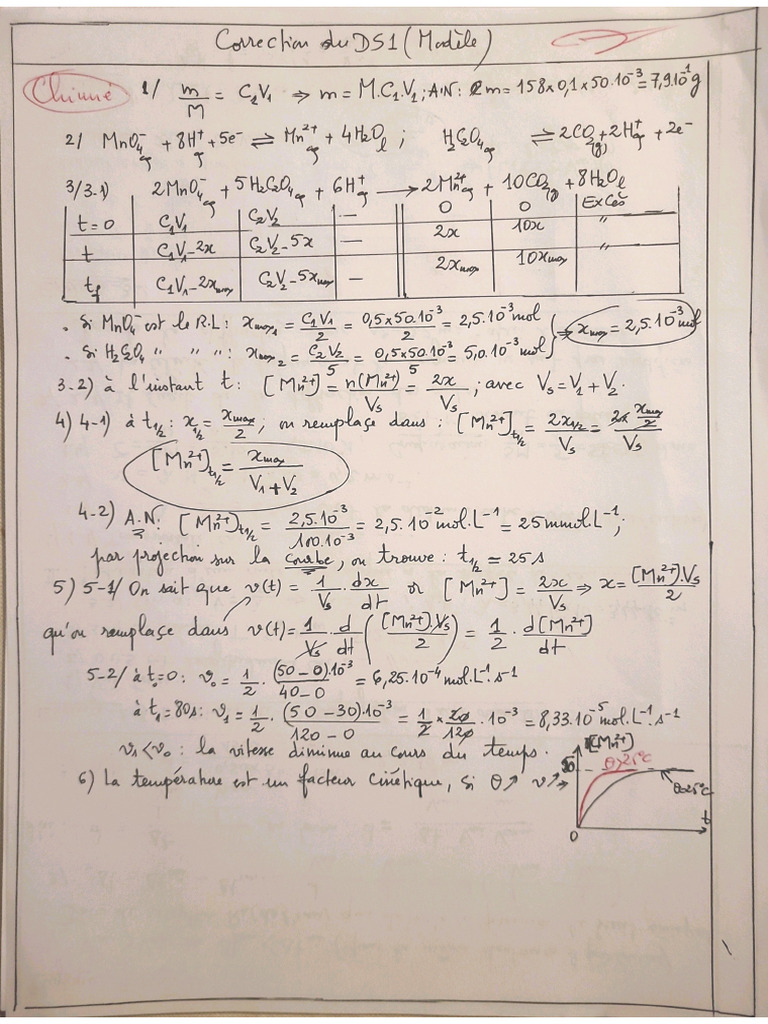 Correction du DS1 (Modèle)
Chimie
1/ m/M = C₁V₁ ⇒ m = M.C₁.V₁ ; A.N: m = 158×0,1×50.10⁻³ = 7,9.10⁻¹ g
2/ MnO₄⁻aq + 8H⁺aq + 5e⁻ ⇌ Mn²⁺aq + 4H₂Oℓ ; H₂C₂O₄aq ⇌ 2CO₂(g) + 2H⁺aq + 2e⁻
3/3-1) 2MnO₄⁻aq + 5H₂C₂O₄aq + 6H⁺aq → 2Mn²⁺aq + 10CO₂g + 8H₂Oℓ
t=0 C₁V₁ C₂V₂ — 0 0 Excès
t C₁V₁-2x C₂V₂-5x — 2x 10x "
tf C₁V₁-2xmax C₂V₂-5xmax — 2xmax 10xmax "
. Si MnO₄⁻ est le R.L: xmax₁ = C₁V₁/2 = 0,5×50.10⁻³/2 = 2,5.10⁻³ mol
⇒ xmax = 2,5.10⁻³ mol
. Si H₂C₂O₄ " " ": xmax₂ = C₂V₂/5 = 0,5×50.10⁻³/5 = 5,0.10⁻³ mol
3-2) à l'instant t: [Mn²⁺] = n(Mn²⁺)/Vs = 2x/Vs ; avec Vs = V₁ + V₂.
4) 4-1) à t1/2: x1/2 = xmax/2 ; on remplace dans : [Mn²⁺]t1/2 = 2x1/2/Vs = 2.xmax/2/Vs
[Mn²⁺]t1/2 = xmax/V₁+V₂
4-2) A.N: [Mn²⁺]t1/2 = 2,5.10⁻³/100.10⁻³ = 2,5.10⁻² mol.L⁻¹ = 25 mmol.L⁻¹ ;
par projection sur la courbe, on trouve : t1/2 ≃ 25 s
5) 5-1/ On sait que v(t) = 1/Vs . dx/dt or [Mn²⁺] = 2x/Vs ⇒ x = [Mn²⁺].Vs/2
qu'on remplace dans v(t) = 1/Vs . d/dt ([Mn²⁺].Vs/2) = 1/2 . d[Mn²⁺]/dt
5-2/ à t₀=0 : v₀ = 1/2 . (50-0).10⁻³/40-0 = 6,25.10⁻⁴ mol.L⁻¹.s⁻¹
à t₁=80s: v₁ = 1/2 . (50-30).10⁻³/120-0 = 1/2 × 20/120 .10⁻³ = 8,33.10⁻⁵ mol.L⁻¹.s⁻¹
v₁<v₀ : la vitesse diminue au cours du temps.
6) La température est un facteur cinétique, si θ↗ v↗
[Mn²⁺]
θ>25°C
θ=25°C
t
0